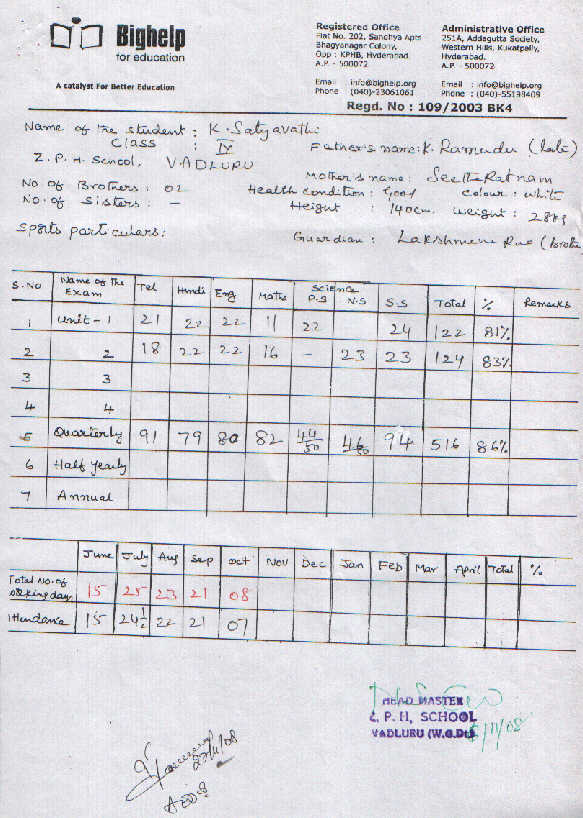 Bighelp
for education
A catalyst For Better Education
Registered Office
Flat No. 202, Sandhya Apts
Bhagyanagar Colony,
Opp : KPHB, Hyderabad
A.P. - 500072
Email : info@bighelp.org
Phone (040)-23061061
Administrative Office
251A, Addagutta Society,
Western Hills, Kukatpally,
Hyderabad.
A.P. - 500072
Email : info@bighelp.org
Phone : (040)-55138409
Regd. No : 109/2003 BK4
Name of the student : K. Satyavathi
Class : IX
Father's name: K. Ramudu (late)
Z. P. H. School, VADLURU
Mother's name: Seetha Ratnam
No of Brothers : 02
Health condition : good Colour : white
No. of Sisters : -
Height : 140cm. weight : 28kg
Sports particulars:
Guardian : Lakshmana Rao
S.No Name of the Exam Tel Hindi Eng Maths Science P.S N.S S.S Total % Remarks
1 Unit - 1 21 22 22 11 22 24 122 81%
2 2 18 22 22 16 - 23 23 124 83%
3 3
4 4
5 Quarterly 91 79 80 82 44/50 46/50 94 516 86%
6 Half yearly
7 Annual
June July Aug Sep Oct Nov Dec Jan Feb Mar April Total %
Total No. of working days 15 25 23 21 08
Attendance 15 24½ 22 21 07
HEAD MASTER
Z. P. H, SCHOOL
VADLURU (W.G.Dt)